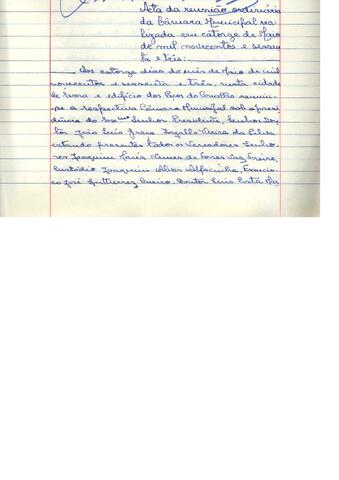 Acta da reunião ordinária
da Câmara Municipal rea-
lizada em catorze de Maio
de mil novecentos e sessen-
ta e três:
Aos catorze dias do mês de Maio de mil
novecentos e sessenta e três, nesta cidade
de Évora e edifício dos Paços do Concelho reuniu-
-se a respectiva Câmara Municipal sob a presi-
dência do Exmo Senhor Presidente, Senhor Dou-
tor João Luís Vieira da Silva
estando presentes todos os Vereadores Senho-
res Joaquim Maria Nunes de Torres Vaz Freire,
Custódio Joaquim Alves Alfacinha, Francis-
co José Gutierrez Doutor Luis Costa